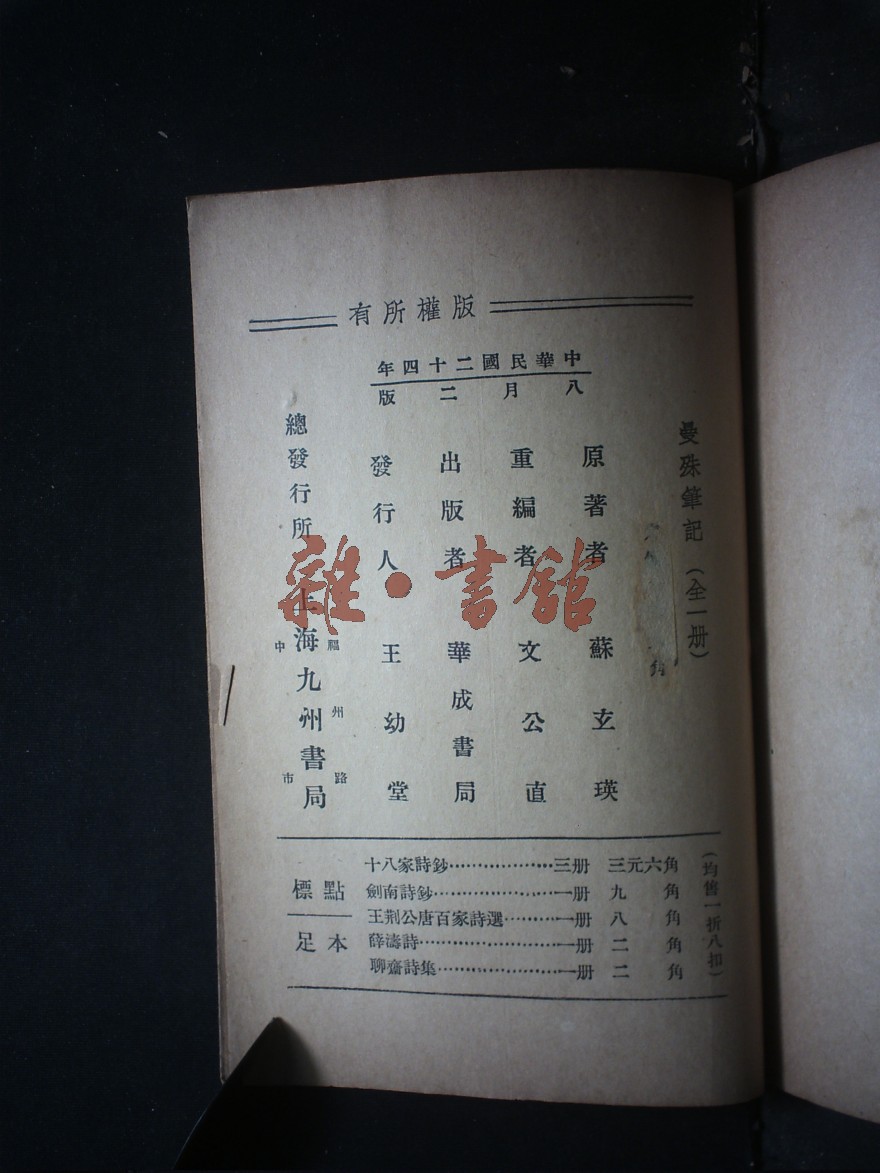 版權所有
中華民國二十四年
八月二版
曼殊筆記（全一册）
原著者 蘇玄瑛
重編者 文公直
出版者 華成書局
發行人 王幼堂
總發行所 上海九州書局
福州路
中市
標點
足本
十八家詩鈔…………………三册 三元六角
劍南詩鈔…………………一册 九角
王荆公唐百家詩選…………一册 八角
薛濤詩…………………一册 二角
聊齋詩集…………………一册 二角
（均售一折八扣）
雜·書館